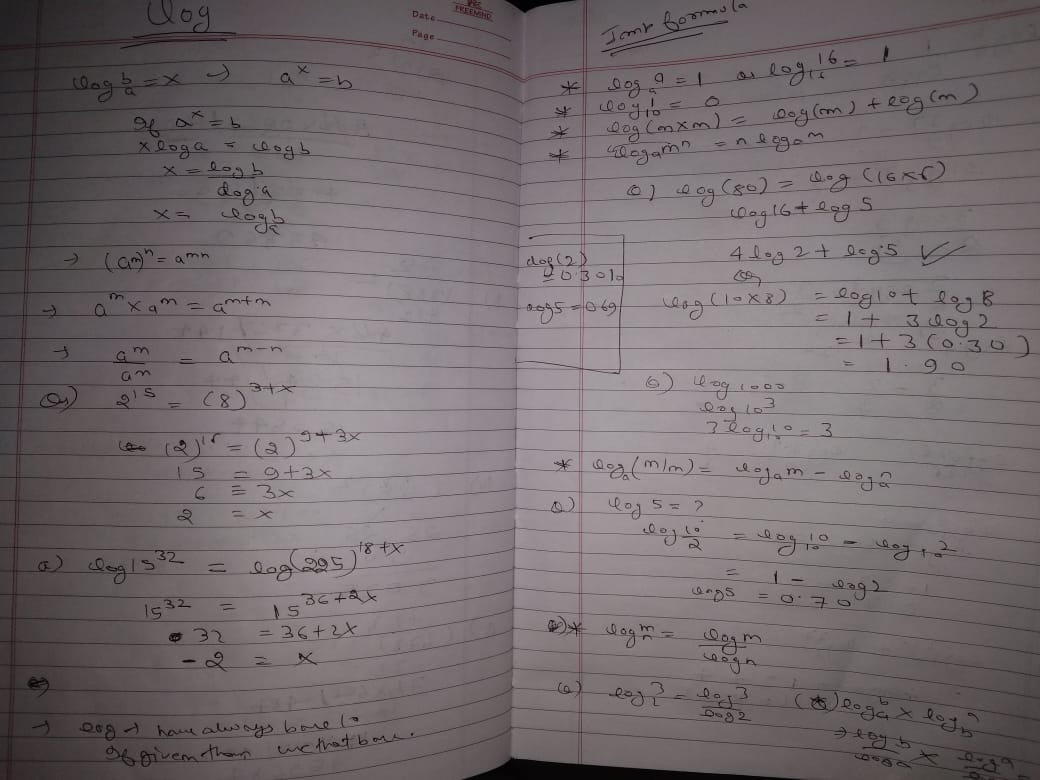 log
Date
Page
FREEMIND
log_a b = x → a^x = b
If a^x = b
x log a = log b
x = log b / log a
x = log_a b
→ (a^m)^n = a^mn
→ a^m × a^n = a^m+n
→ a^m / a^n = a^m-n
Q) 2^15 = (8)^3+x
(2)^15 = (2)^9+3x
15 = 9+3x
6 = 3x
2 = x
Q) log 15^32 = log(225)^18+x
15^32 = 15^36+2x
32 = 36+2x
-2 = x
→ log → have always base 10
If given than use that base.
Imp formula
* log_a a = 1 or log_16 16 = 1
* log_10 1 = 0
* log(m×n) = log(m) + log(n)
* log_a m^n = n log_a m
Q) log(80) = log(16×5)
log 16 + log 5
4 log 2 + log 5 ✓
or
log(10×8) = log 10 + log 8
= 1 + 3 log 2
= 1 + 3(0.30)
= 1.90
log(2)
= 0.3010
log 5 = 0.69
Q) log 1000
log 10^3
3 log_10 10 = 3
* log_a(m/n) = log_a m - log_a n
Q) log 5 = ?
log 10/2 = log_10 10 - log_10 2
= 1 - log 2
log 5 = 0.70
* log_n m = log m / log n
Q) log_2 3 = log 3 / log 2
(*) log_a b × log_b a
→ log b / log a × log a